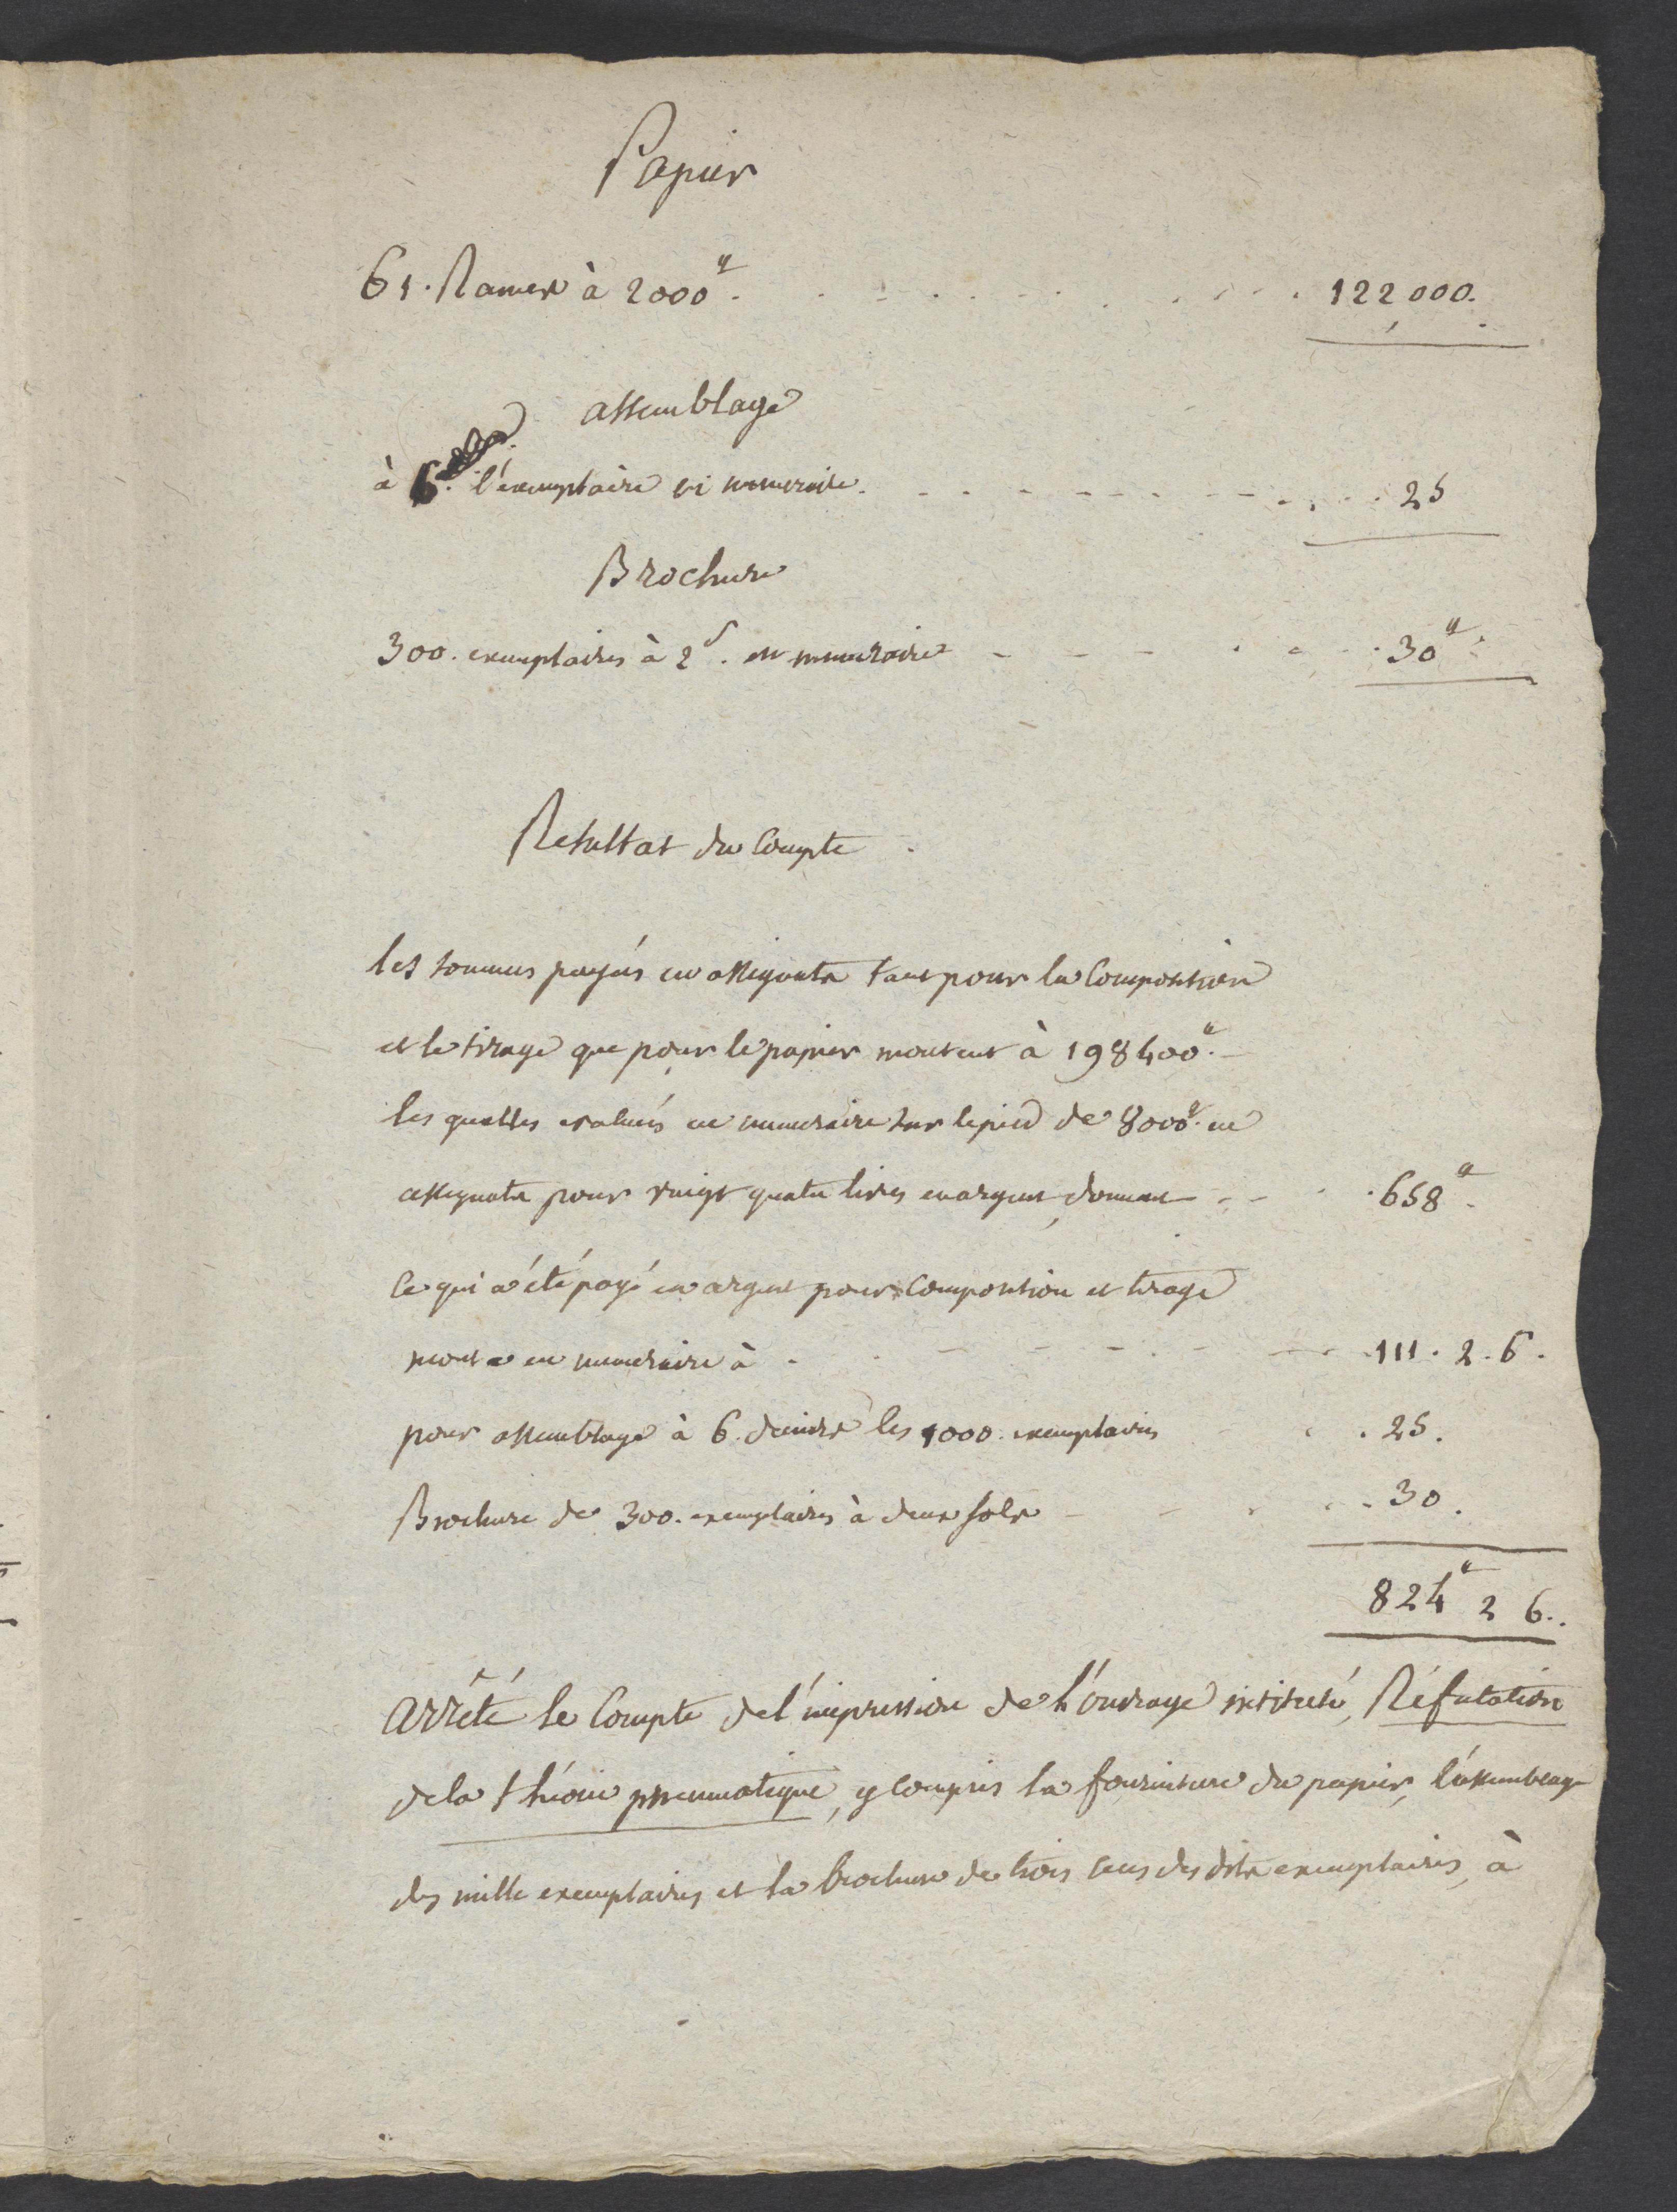 Papier
61. Rames à 2000# . 122 000.
assemblage
à 6. l'exemplaire en numeraire. 25
Brochure
300. exemplaires à 2s. en numeraire 30#
Resultat du Compte
les sommes payés en assignats tant pour la Composition
et le tirage que pour le papier montent à 198400#.
les quelles evalués en numeraire sur le pied de 8000# en
assignats pour vingt quatre livres en argent, donnent 658#.
Ce qui a été payé en argent pour Composition et tirage
monte en numeraire à 111. 2. 6.
pour assemblage à 6. deniers les 1000. exemplaires 25.
Brochure de 300. exemplaires à deux sols 30.
824# 2 6.
Arrêté le Compte de l'impression de l'ouvrage intitulé, Réfutation
de la théorie pneumatique, y compris la fourniture du papier, l'assemblage
des mille exemplaires et la brochure de trois cens des dits exemplaires, à